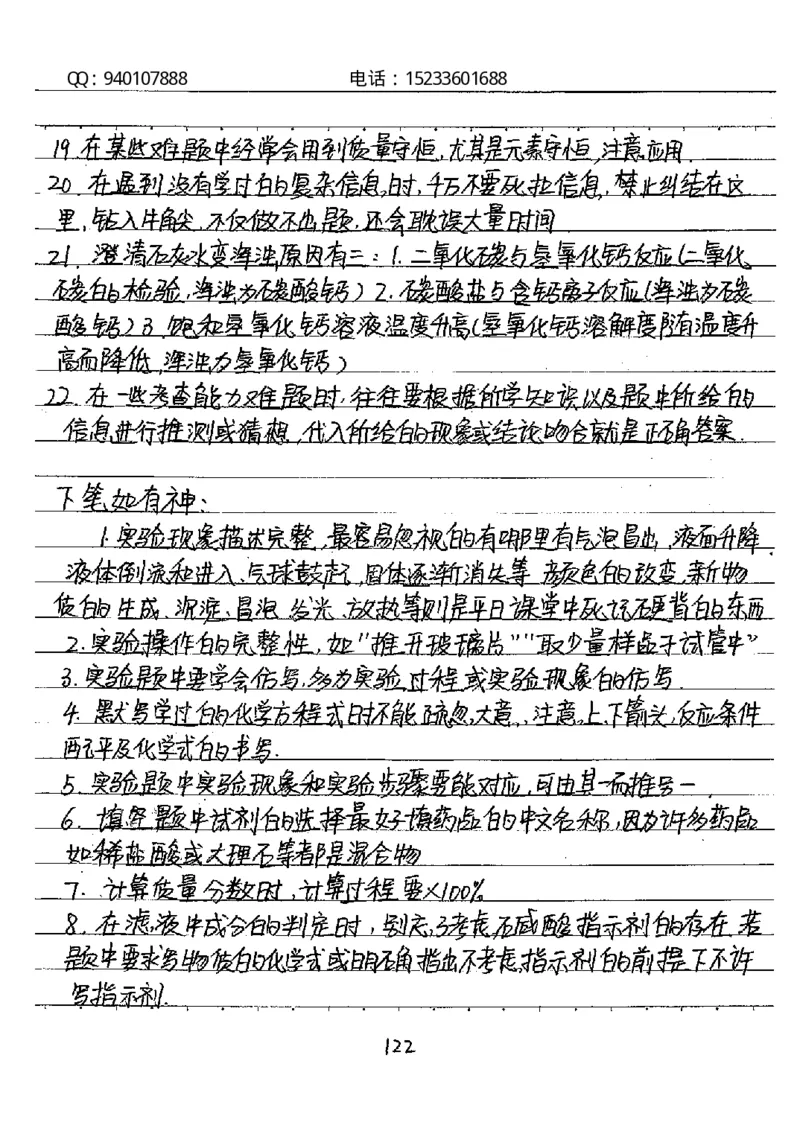 QQ：940107888 电话：15233601688
19.在某些难题中经常会用到质量守恒,尤其是元素守恒,注意应用.
20.在遇到没有学过的复杂信息时,千万不要死扣信息,禁止纠结在这
里,钻入牛角尖,不仅做不出题,还会耽误大量时间
21.澄清石灰水变浑浊原因有三：1.二氧化碳与氢氧化钙反应(二氧化
碳的检验,浑浊为碳酸钙)2.碳酸盐与含钙离子反应(浑浊为碳
酸钙)3.饱和氢氧化钙溶液温度升高(氢氧化钙溶解度随温度升
高而降低,浑浊为氢氧化钙)
22.在一些考查能力难题时,往往要根据所学知识以及题中所给的
信息进行推测或猜想,代入所给的现象或结论吻合就是正确答案.
下笔如有神：
1.实验现象描述完整,最容易忽视的有哪里有气泡冒出,液面升降
液体倒流和进入,气球鼓起,固体逐渐消失等,颜色的改变,新物
质的生成、沉淀、冒泡、发光、放热等则是平日课堂中死记硬背的东西
2.实验操作的完整性,如"推开玻璃片""取少量样品于试管中"
3.实验题中要学会仿写,多为实验过程或实验现象的仿写.
4.默写学过的化学方程式时不能疏忽,大意,注意上、下箭头,反应条件
配平及化学式的书写.
5.实验题中实验现象和实验步骤要能对应,可由其一而推另一.
6.填空题中试剂的选择最好填药品的中文名称,因为许多药品
如稀盐酸或大理石等都是混合物
7.计算质量分数时,计算过程要×100%
8.在滤液中成分的判定时,别忘了考虑石碱酸指示剂的存在,若
题中要求写物质的化学式或明确指出不考虑指示剂的前提下不许
写指示剂.
122